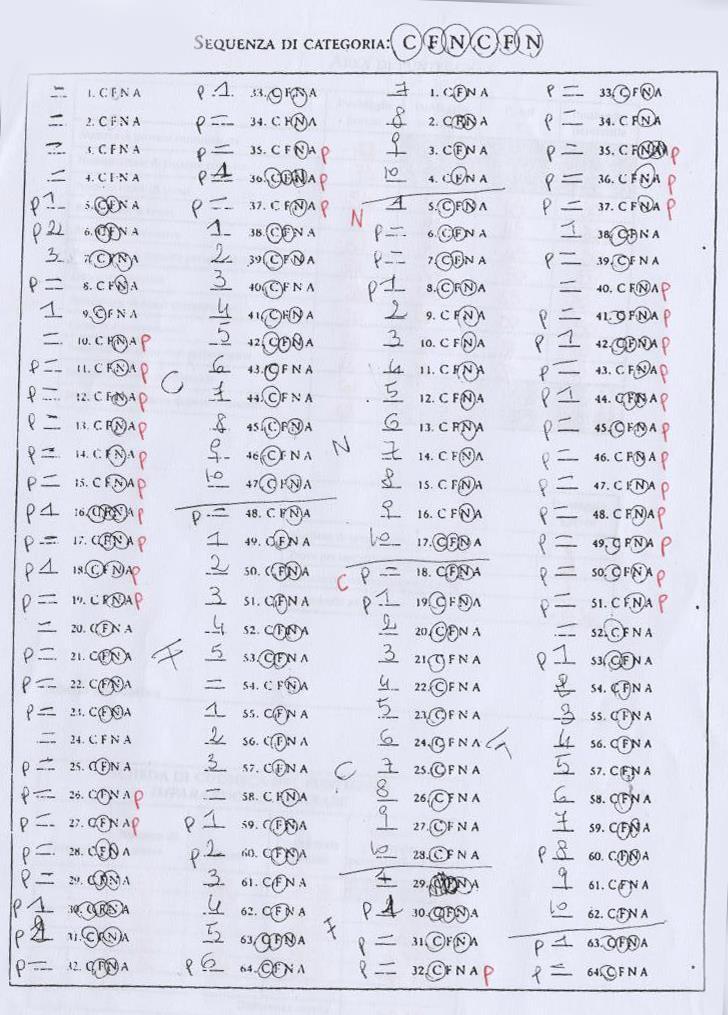 SEQUENZA DI CATEGORIA: C F N C F N
= 1. C F N A
= 2. C F N A
= 3. C F N A
= 4. C F N A
P 1 5. C F N A
P 2 6. C F N A
3 7. C F N A
P = 8. C F N A
1 9. C F N A
= 10. C F N A P
P = 11. C F N A P
P = 12. C F N A P
P = 13. C F N A P
P = 14. C F N A P
P = 15. C F N A P
P 1 16. C F N A P
P = 17. C F N A P
P 1 18. C F N A P
P = 19. C F N A P
= 20. C F N A
P = 21. C F N A
P = 22. C F N A
P = 23. C F N A
= 24. C F N A
P = 25. C F N A
P = 26. C F N A P
P = 27. C F N A P
P = 28. C F N A
P = 29. C F N A
P 1 30. C F N A
P 31. C F N A
P = 32. C F N A
P 1 33. C F N A
P = 34. C F N A
P = 35. C F N A P
P 36. C F N A P
P = 37. C F N A P
1 38. C F N A
2 39. C F N A
3 40. C F N A
4 41. C F N A
5 42. C F N A
C 6 43. C F N A
7 44. C F N A
8 45. C F N A
9 46. C F N A
10 47. C F N A
P = 48. C F N A
1 49. C F N A
2 50. C F N A
3 51. C F N A
4 52. C F N A
F 5 53. C F N A
= 54. C F N A
1 55. C F N A
2 56. C F N A
3 57. C F N A
= 58. C F N A
P 1 59. C F N A
P 2 60. C F N A
3 61. C F N A
4 62. C F N A
5 63. C F N A
P 6 64. C F N A
7 1. C F N A
8 2. C F N A
9 3. C F N A
10 4. C F N A
N 1 5. C F N A
P = 6. C F N A
P = 7. C F N A
P 1 8. C F N A
2 9. C F N A
3 10. C F N A
4 11. C F N A
5 12. C F N A
6 13. C F N A
N 7 14. C F N A
8 15. C F N A
9 16. C F N A
10 17. C F N A
C P = 18. C F N A
P 1 19. C F N A
2 20. C F N A
3 21. C F N A
4 22. C F N A
5 23. C F N A
6 24. C F N A
C 7 25. C F N A
8 26. C F N A
9 27. C F N A
10 28. C F N A
1 29. C F N A
P 1 30. C F N A
F P = 31. C F N A
P = 32. C F N A P
P = 33. C F N A
= 34. C F N A
P = 35. C F N A P
P = 36. C F N A P
P = 37. C F N A P
1 38. C F N A
P = 39. C F N A
= 40. C F N A P
P = 41. C F N A P
P 1 42. C F N A P
P = 43. C F N A P
P 1 44. C F N A P
P = 45. C F N A P
P = 46. C F N A P
P = 47. C F N A P
P = 48. C F N A P
P = 49. C F N A P
P = 50. C F N A P
P = 51. C F N A P
= 52. C F N A
P 1 53. C F N A
2 54. C F N A
3 55. C F N A
F 4 56. C F N A
5 57. C F N A
6 58. C F N A
7 59. C F N A
P 8 60. C F N A
9 61. C F N A
10 62. C F N A
P 1 63. C F N A
P = 64. C F N A